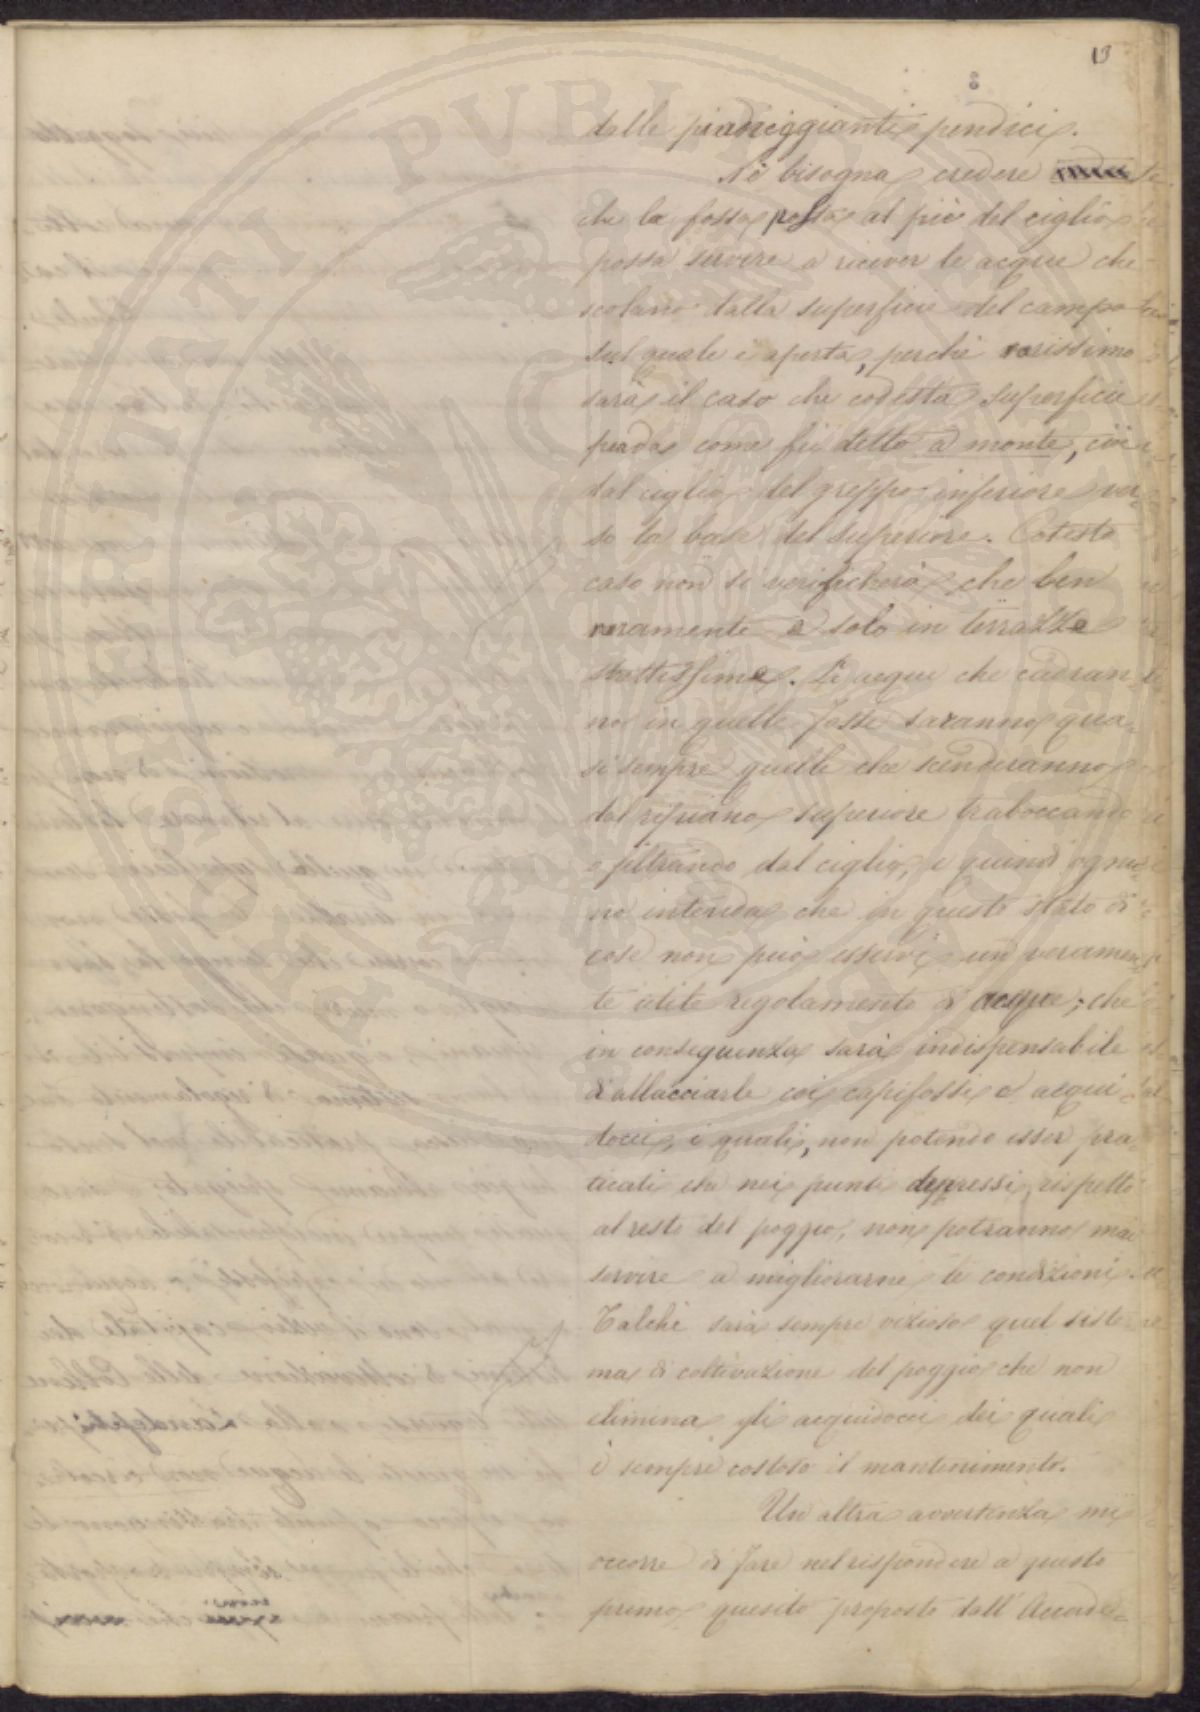 13
dalle pianeggianti pendici.
Nè bisogna credere
che la fossa posta al piè del ciglio
possa servire a ricever le acque che
scolano dalla superficie del campo
sul quale è aperta, perchè rarissimo
sarà il caso che codesta superficie
penda come fu detto a monte, cioè
dal ciglio del greppo inferiore ver-
so la base del superiore. Cotesto
caso non si verificherà che ben
raramente e solo in terrazze
strettissime. Le acque che cadran-
no in quelle fosse saranno qua-
si sempre quelle che scenderanno
dal ripiano superiore traboccando
o filtrando dal ciglio, e quindi ognu-
no intenda che in questo stato di
cose non può esservi un veramen-
te utile regolamento di acque; che
in conseguenza sarà indispensabile
d'allacciarle coi capifossi ed acqui-
docci, i quali, non potendo esser pra-
ticati che nei punti depressi rispetto
al resto del poggio, non potranno mai
servire a migliorarne le condizioni.
Talchè sarà sempre vizioso quel siste-
ma di coltivazione del poggio che non
elimina gli acquidocci dei quali
è sempre costoso il mantenimento.
Un altra avvertenza mi
occorre di fare nel rispondere a questo
primo quesito proposto dall' Accade-